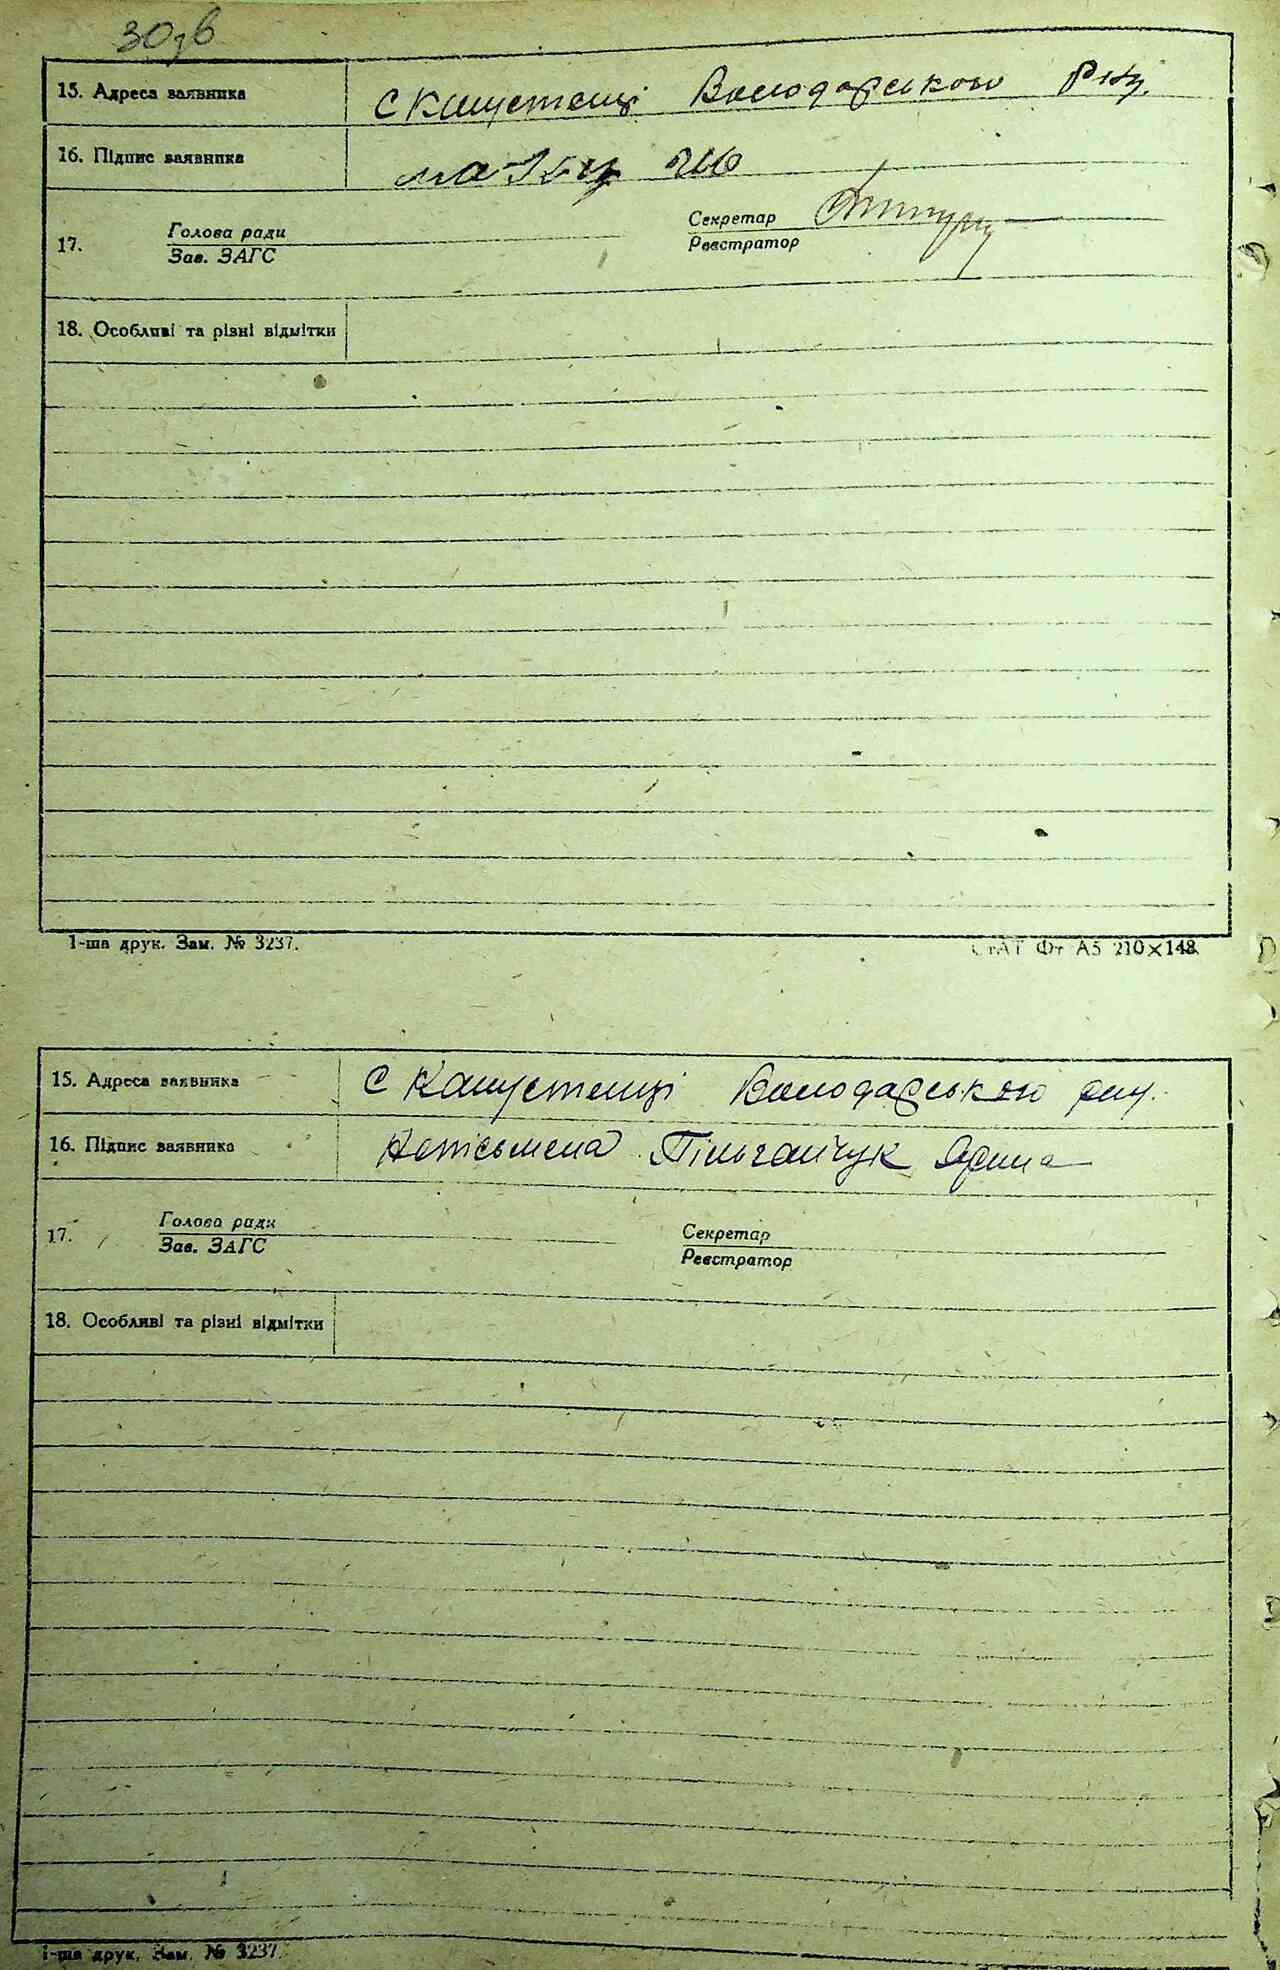 30зв
15. Адреса заявника С Капустенці Володарського р-ну.
16. Підпис заявника
17. Голова ради Секретар
Зав. ЗАГС Реєстратор
18. Особливі та різні відмітки
1-ша друк. Зам. № 3237. СтАТ Фт А5 210×148
15. Адреса заявника С Капустенці Володарського рну.
16. Підпис заявника Неписьмена Пільгайчук Ярина
17. Голова ради Секретар
Зав. ЗАГС Реєстратор
18. Особливі та різні відмітки
1-ша друк. Зам. № 3237.